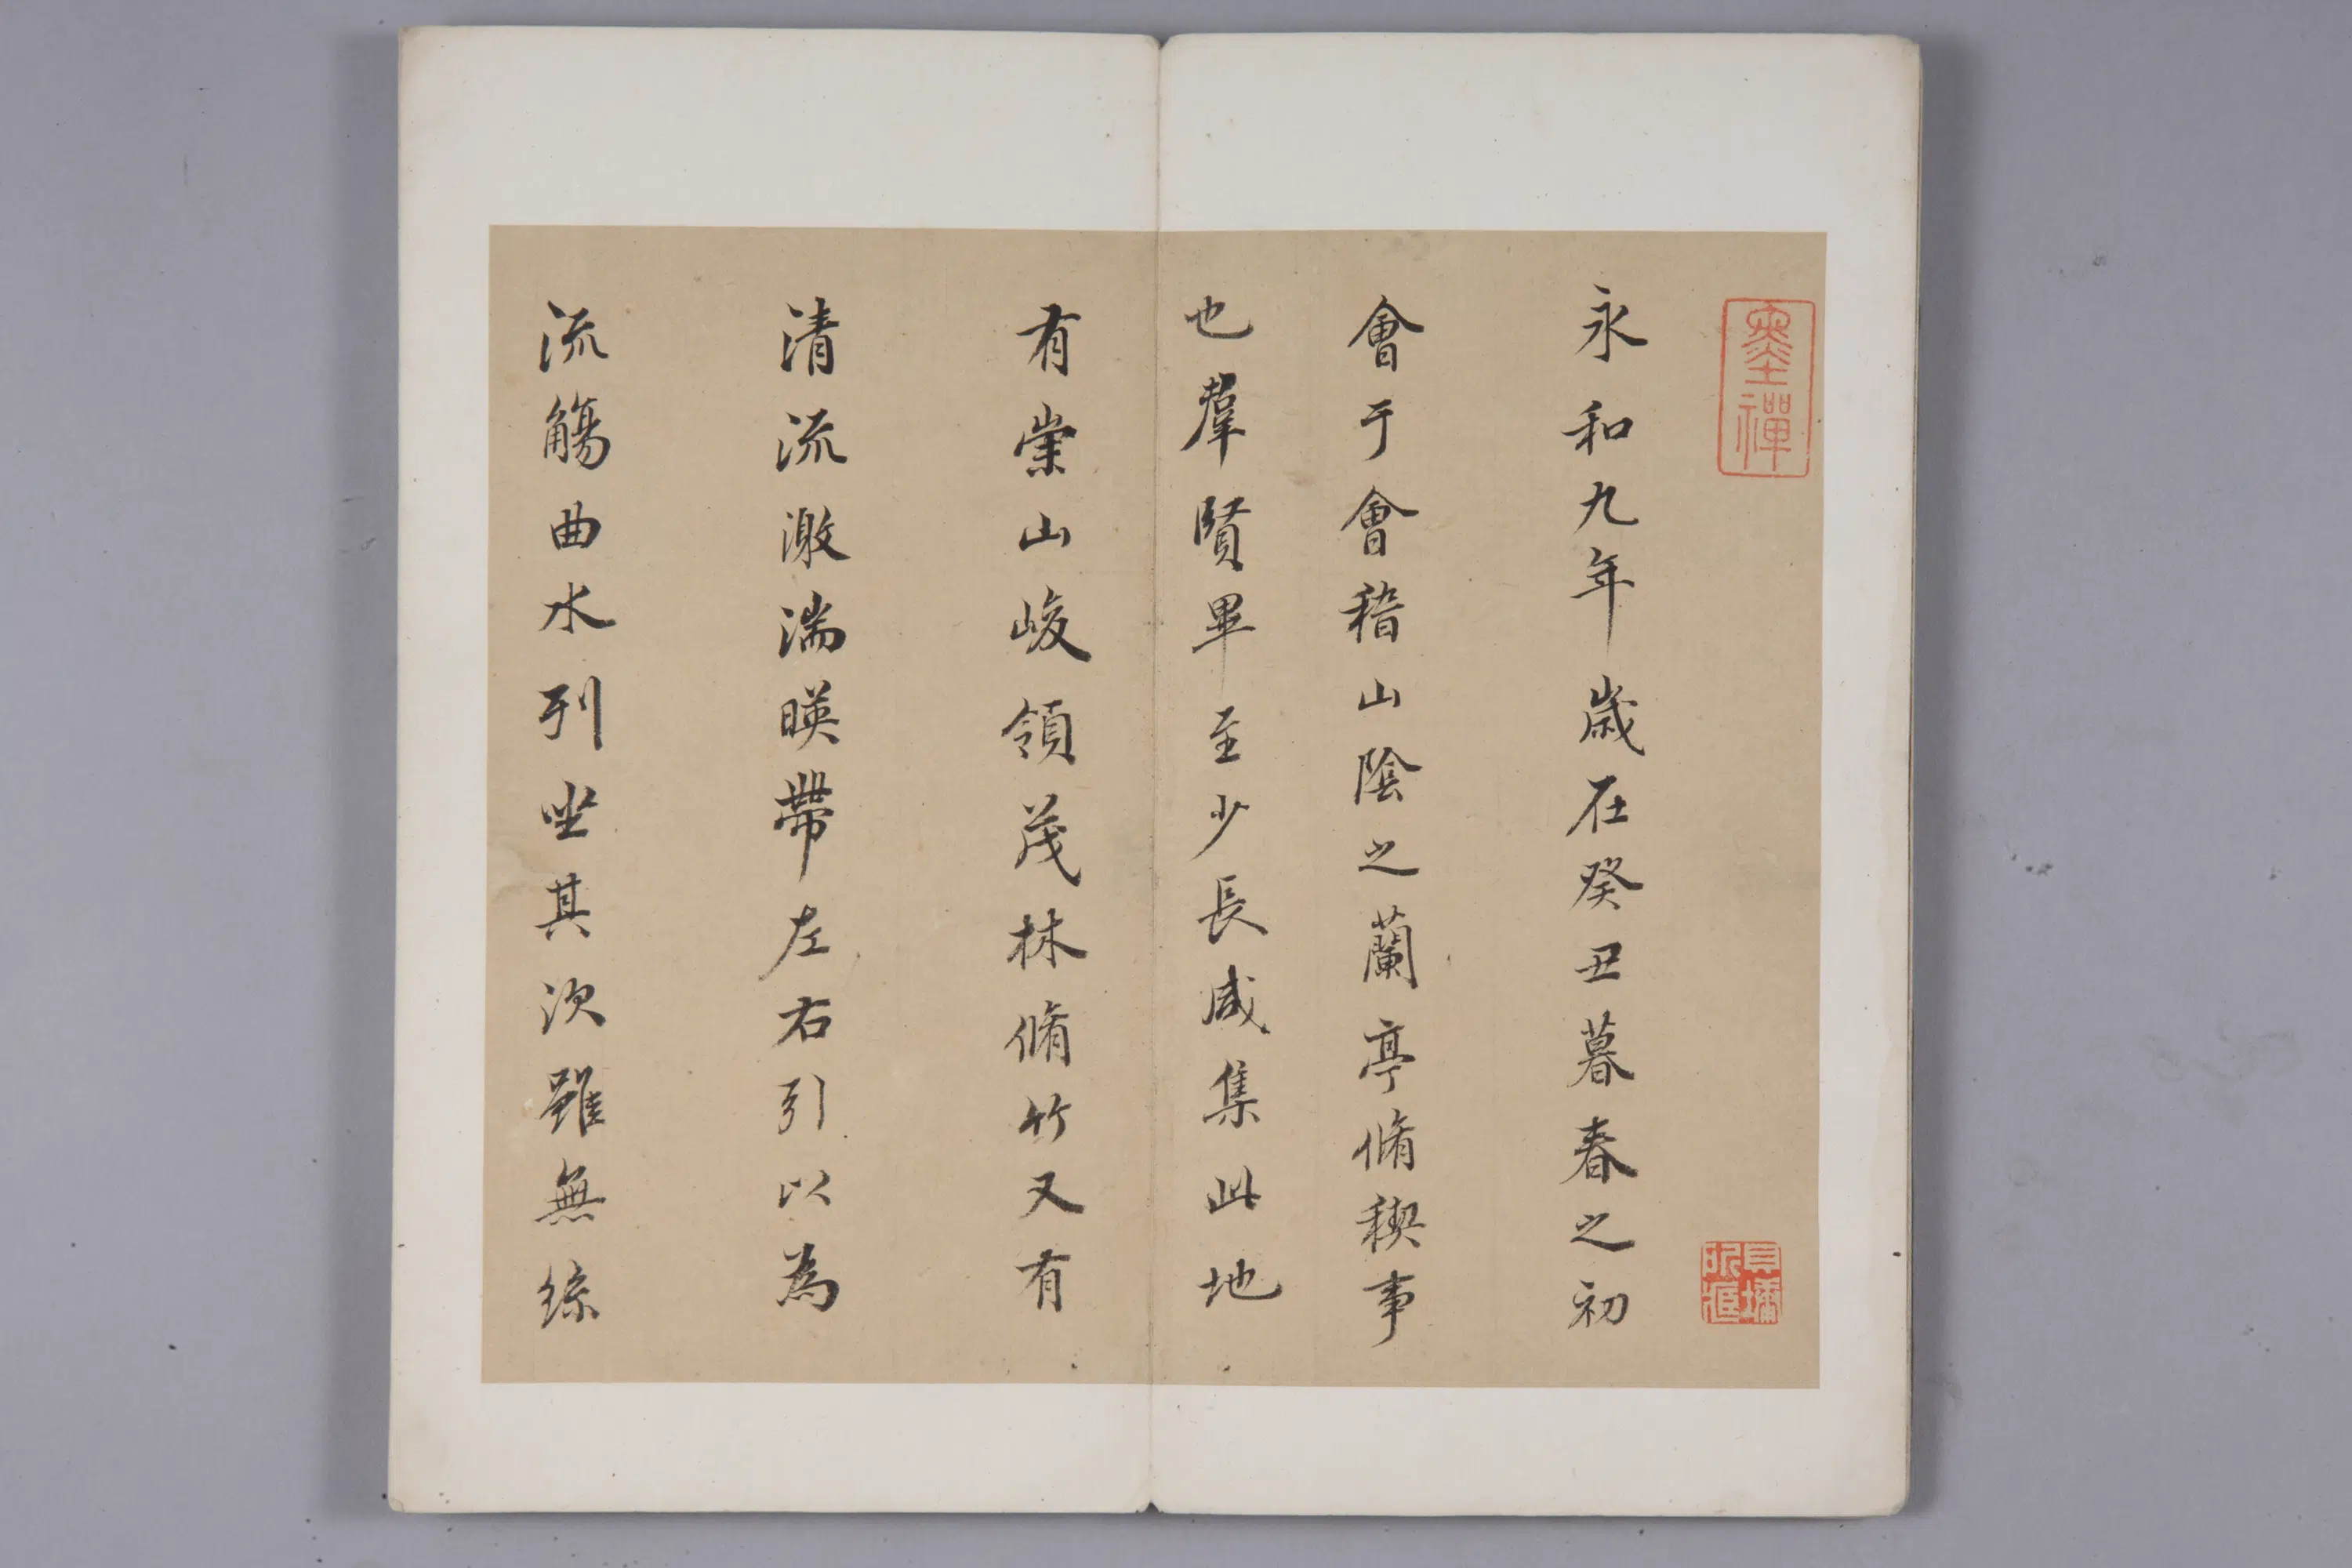 墨禪
永和九年歲在癸丑暮春之初
會于會稽山陰之蘭亭脩稧事
也羣賢畢至少長咸集此地
有崇山峻領茂林脩竹又有
清流激湍暎帶左右引以為
流觴曲水列坐其次雖無絲